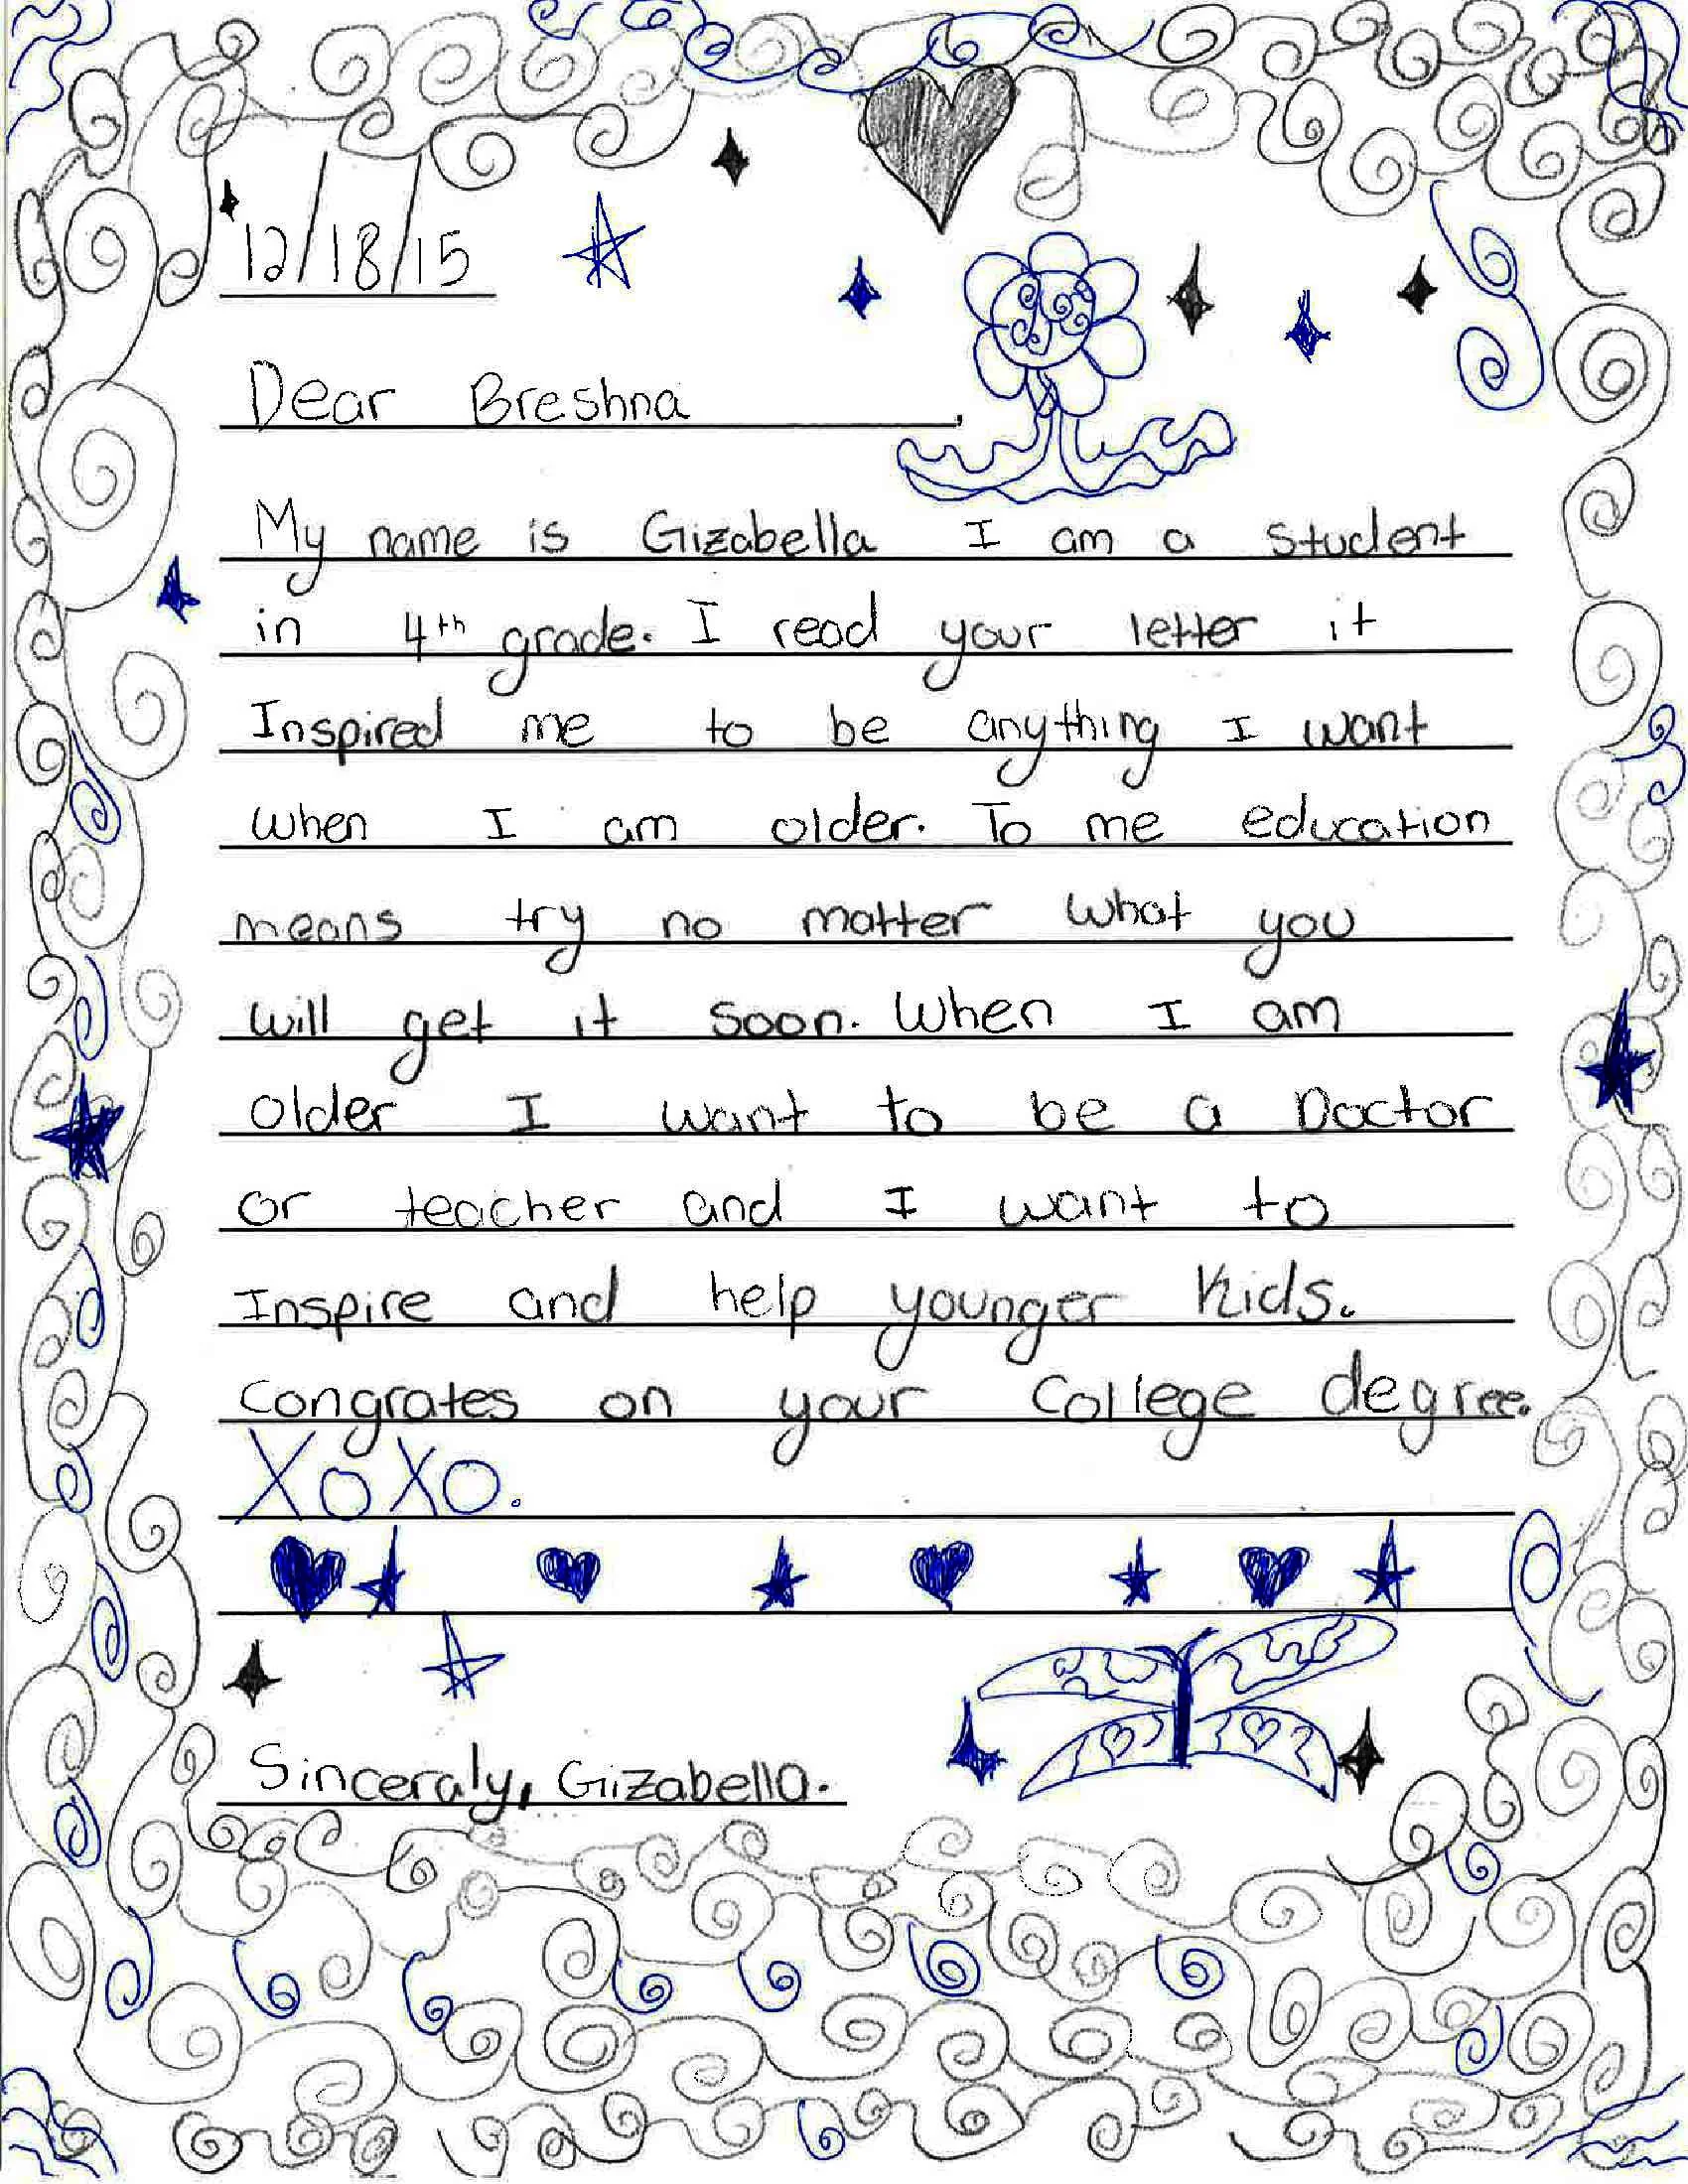 12/18/15
Dear Breshna,
My name is Gizabella I am a student
in 4th grade. I read your letter it
Inspired me to be anything I want
when I am older. To me education
means try no matter what you
will get it soon. When I am
older I want to be a Doctor
or teacher and I want to
Inspire and help younger kids.
Congrates on your College degree.
XoXo.
Sinceraly, Gizabella.